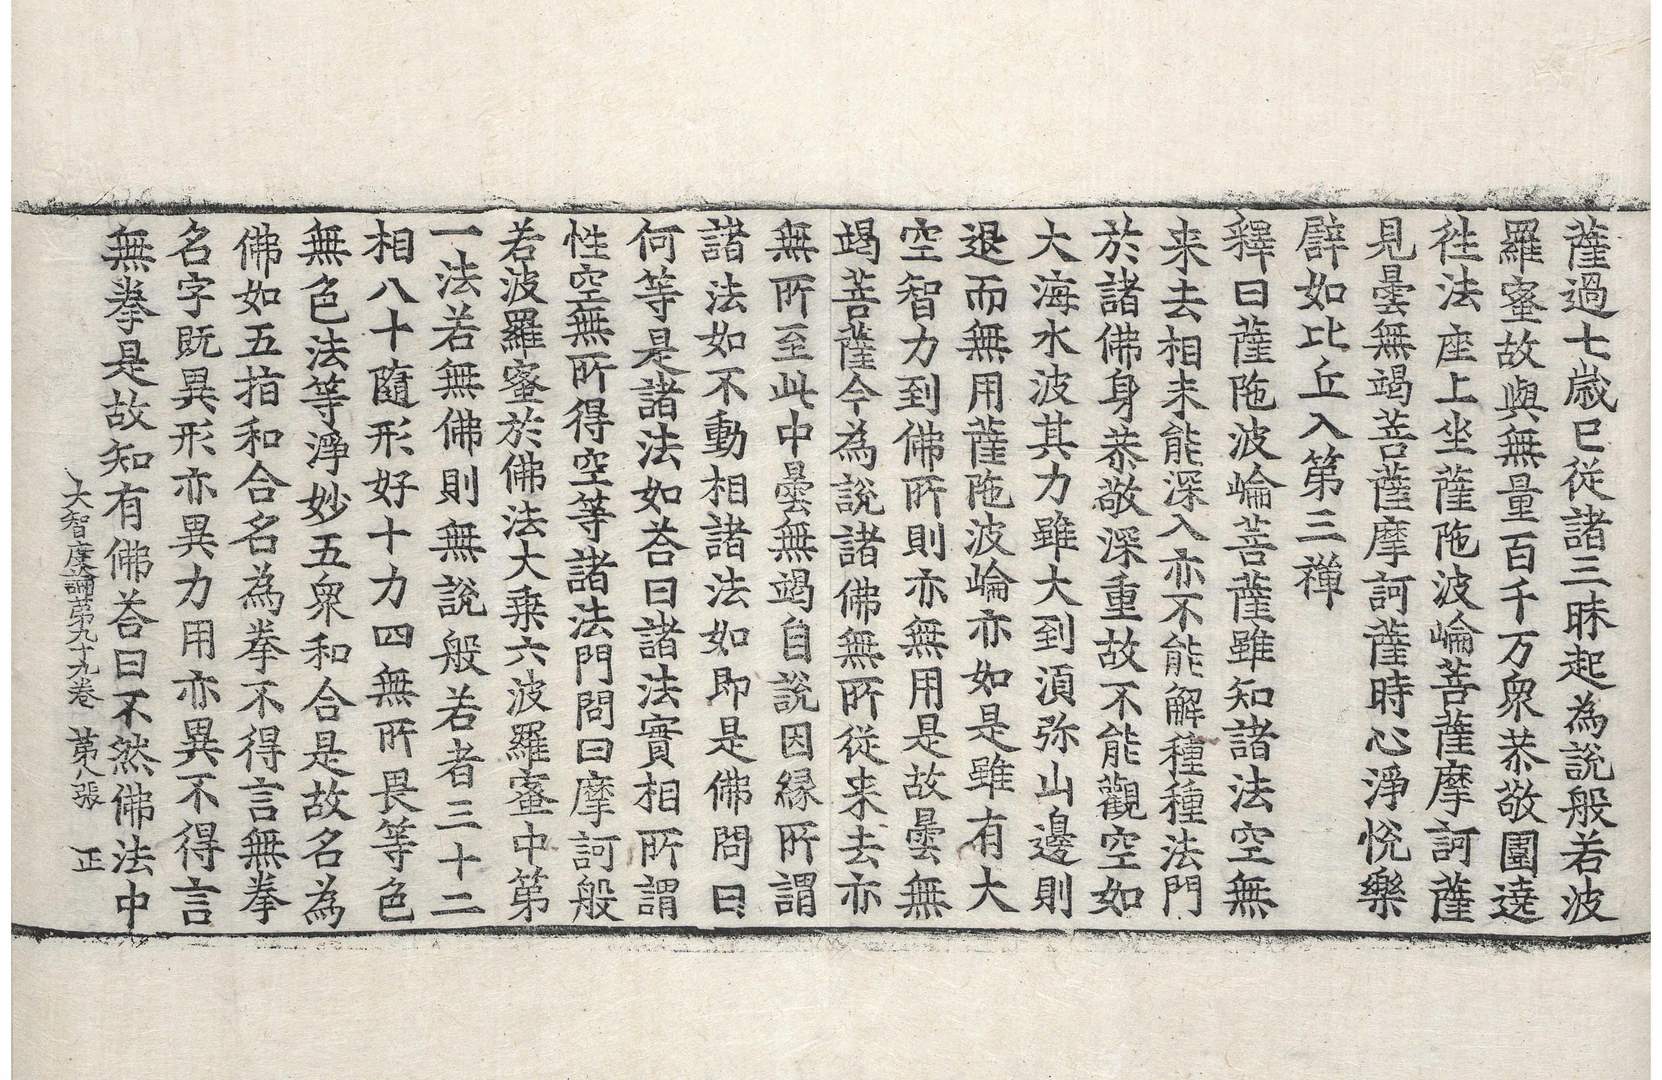 薩過七歲已從諸三昧起為說般若波
羅蜜故與無量百千万衆恭敬圍遶
往法座上坐薩陁波崘菩薩摩訶薩
見曇無竭菩薩摩訶薩時心淨悅樂
譬如比丘入第三禪
釋曰薩陁波崘菩薩雖知諸法空無
来去相未能深入亦不能解種種法門
於諸佛身恭敬深重故不能觀空如
大海水波其力雖大到湏弥山邊則
退而無用薩陁波崘亦如是雖有大
空智力到佛所則亦無用是故曇無
竭菩薩今為說諸佛無所從来去亦
無所至此中曇無竭自說因緣所謂
諸法如不動相諸法如即是佛問曰
何等是諸法如荅曰諸法實相所謂
性空無所得空等諸法門問曰摩訶般
若波羅蜜於佛法大乗六波羅蜜中第
一法若無佛則無說般若者三十二
相八十隨形好十力四無所畏等色
無色法等淨妙五衆和合是故名為
佛如五指和合名為拳不得言無拳
名字既異形亦異力用亦異不得言
無拳是故知有佛荅曰不然佛法中
大智度論第九十九卷 第八張 正